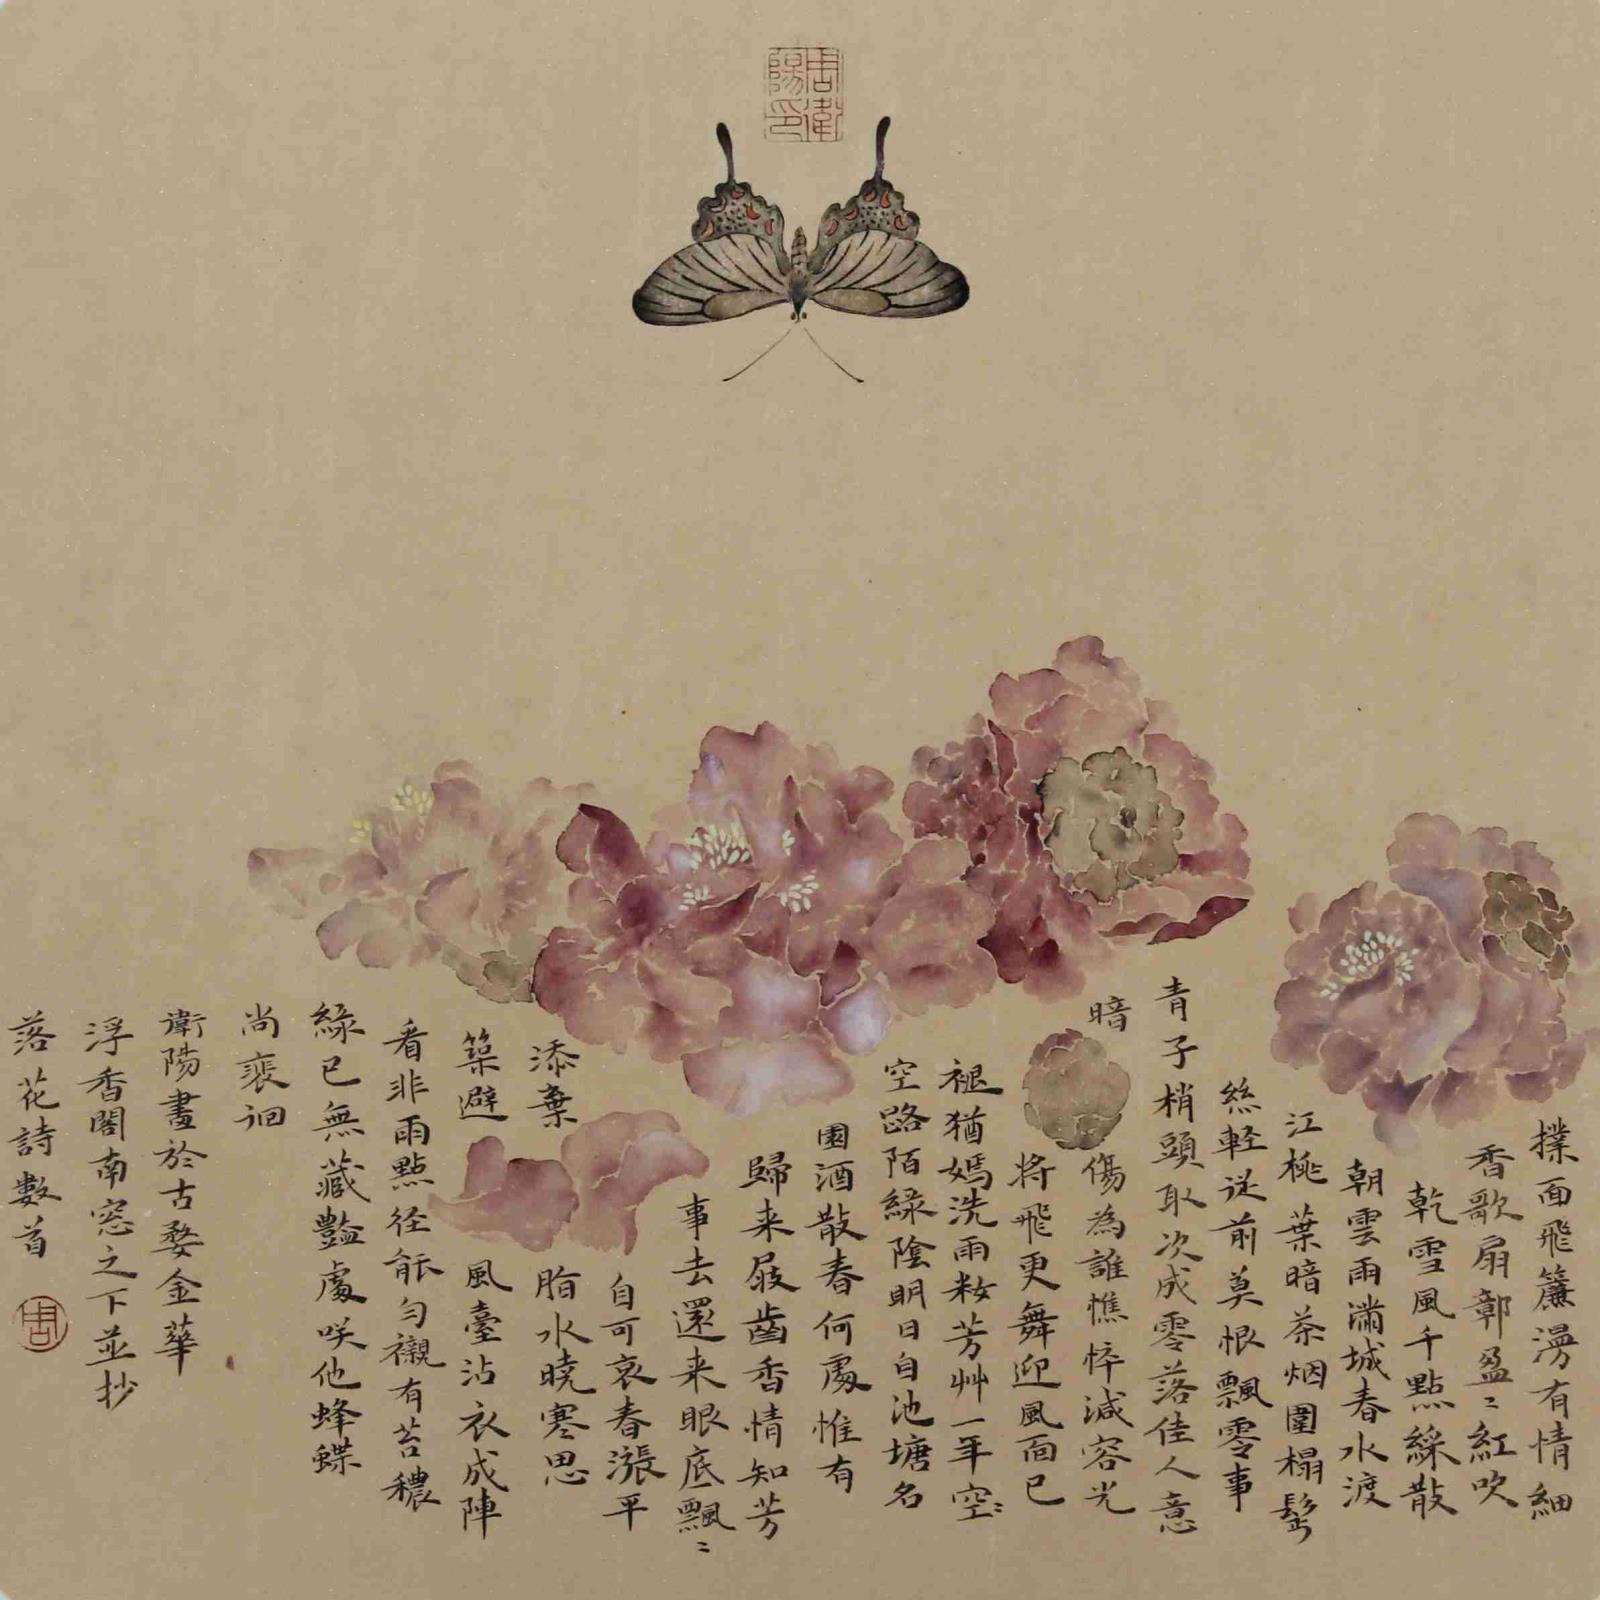 撲面飛簾漫有情細
香歌扇鄣盈〻紅吹
乾雪風千點綵散
朝雲雨滿城春水渡
江桃葉暗茶烟圍榻髩
絲輕従前莫恨飄零事
青子梢頭取次成零落佳人意
暗傷為誰憔悴減容光
將飛更舞迎風面已
褪猶嫣洗雨粧芳艸一年空〻
空路陌綠陰明日自池塘名
園酒散春何處惟有
歸来屐齒香情知芳
事去還来眼底飄〻
自可哀春漲平
添棄脂水曉寒思
築避風臺沾衣成陣
看非雨點径能勻襯有苔穠
綠已無藏豔處咲他蜂蝶
尚裵徊
衛陽畫於古婺金華
浮香閣南窓之下並抄
落花詩數首
周衛陽印
周